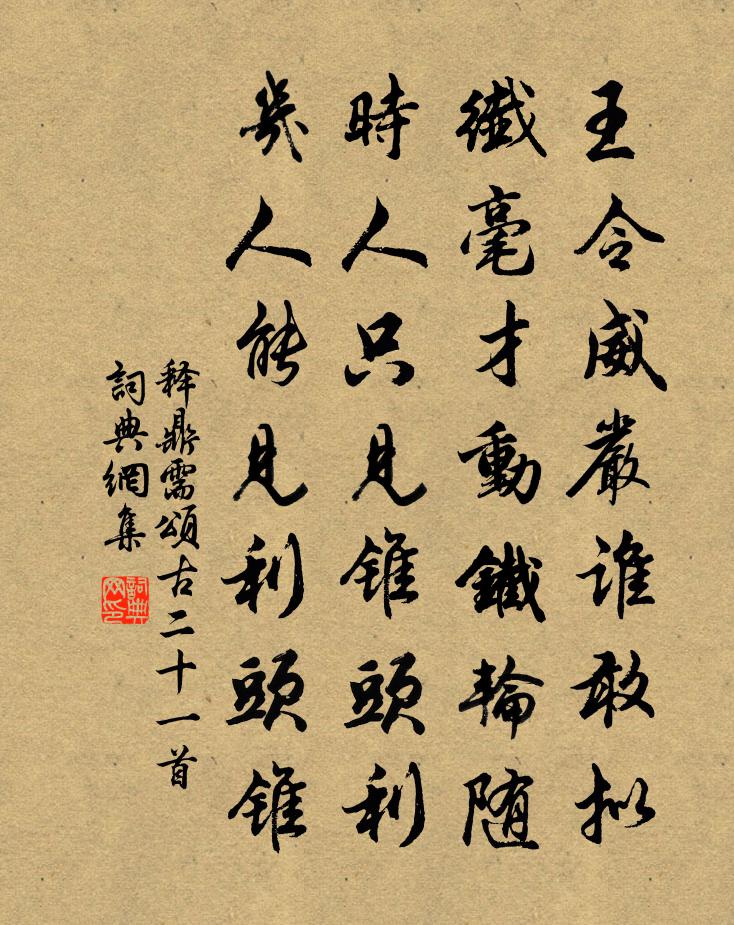 王令威嚴誰敢拟
纖毫才動鐵輪随
時人只見錐頭利
幾人能見利頭錐
释鼎需頌古二十一首
詞典網集
詞典网印